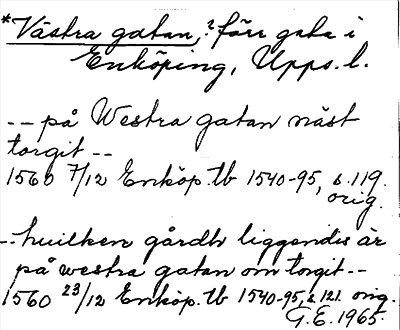 *Västra gatan, ? förr gata i
Enköping, Upps. l.
-- på Westra gatan näst
torgit --
1560 7/12 Enköp. tb 1540-95, s. 119.
orig.
-- huilken gårdh liggendis är
på westra gatan om torgit --
1560 23/12 Enköp. tb 1540-95, s. 121. orig.
G.E. 1965.